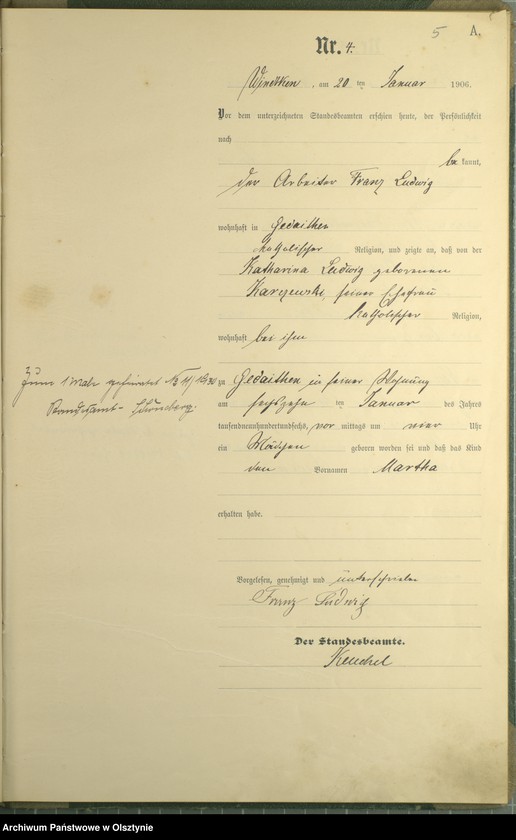 5 A.
Nr. 4.
am 20 ten Januar 1906.
Vor dem unterzeichneten Standesbeamten erschien heute, der Persönlichkeit
nach
bekannt,
der Arbeiter Franz Ludwig
wohnhaft in Gedaithen
katholischer Religion, und zeigte an, daß von der
Katharina Ludwig geborenen
Karczewski, seiner Ehefrau
katholischer Religion,
wohnhaft bei ihm
zu Gedaithen in seiner Wohnung
am sechszehn ten Januar des Jahres
tausendneunhundertundsechs, vor mittags um vier Uhr
ein Mädchen geboren worden sei und daß das Kind
den Vornamen Martha
erhalten habe.
Vorgelesen, genehmigt und unterschrieben
Franz Ludwig
Der Standesbeamte.
Keuchel
Zum 1 Male geheiratet No 11/1930
Standesamt Schönberg.
Archiwum Państwowe w Olsztynie